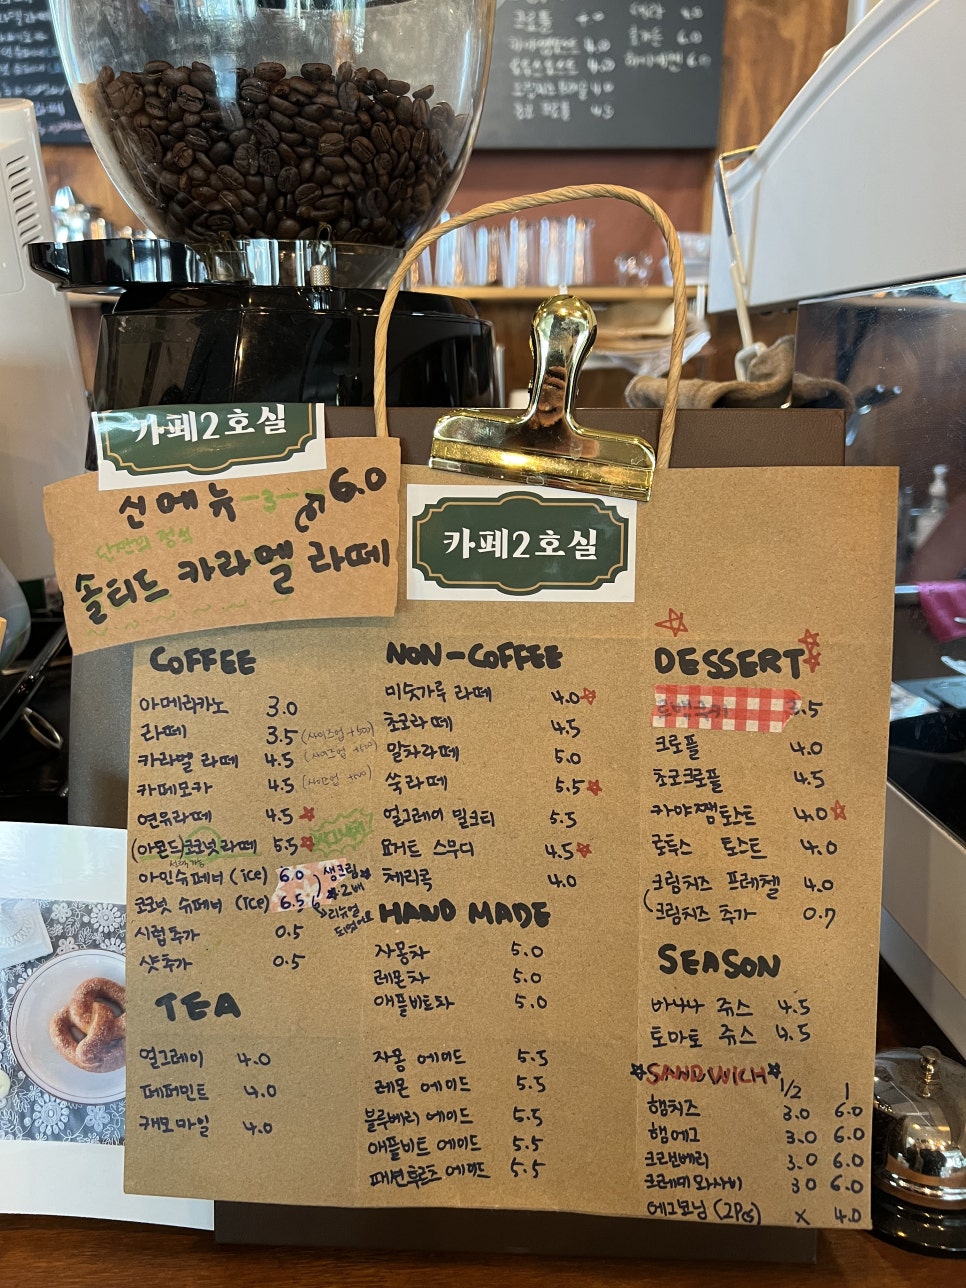 카페2호실
신메뉴 6.0
단짠의 정석
솔티드 카라멜 라떼
카페2호실
COFFEE
아메리카노 3.0
라떼 3.5 (사이즈업 +500)
카라멜 라떼 4.5 (사이즈업 +500)
카페모카 4.5 (사이즈업 +500)
연유라떼 4.5
(아몬드)코코넛라떼 5.5
선택가능
아인슈페너 (ice) 6.0
코코넛 슈페너 (ice) 6.5
생크림
2배
리뉴얼
되었어요
시럽추가 0.5
샷추가 0.5
TEA
얼그레이 4.0
페퍼민트 4.0
캐모마일 4.0
NON-COFFEE
미숫가루 라떼 4.0
초코라떼 4.5
말차라떼 5.0
쑥라떼 5.5
얼그레이 밀크티 5.5
요거트 스무디 4.5
체리콕 4.0
HAND MADE
자몽차 5.0
레몬차 5.0
애플비트차 5.0
자몽 에이드 5.5
레몬 에이드 5.5
블루베리 에이드 5.5
애플비트 에이드 5.5
패션후르츠 에이드 5.5
DESSERT
3.5
크로플 4.0
초코크로플 4.5
카야쨈토스트 4.0
룽투스 토스트 4.0
크림치즈 프레첼 4.0
(크림치즈 추가 0.7
SEASON
바나나 쥬스 4.5
토마토 쥬스 4.5
SANDWICH 1/2 1
햄치즈 3.0 6.0
햄에그 3.0 6.0
크랜베리 3.0 6.0
크래미와사비 3.0 6.0
에그모닝 (2PCS) x 4.0